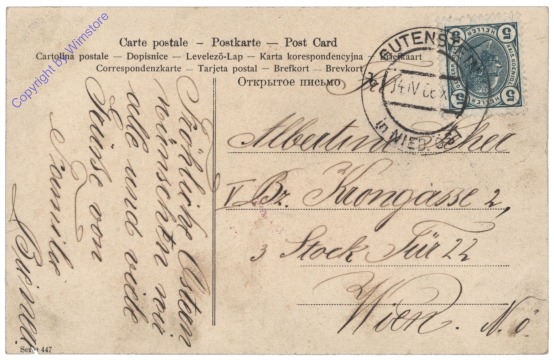 Carte postale – Postkarte – Post Card
Cartolina postale – Dopisnice – Levelező-Lap – Karta korespondencyjna – Brefkaart
Correspondenzkarte – Tarjeta postal – Brefkort – Brevkort
Открытое письмо
GUTENSTEIN
14 IV 06
in NIED. ÖST
5
HELLER
5
Fröhliche Ostern
wünschen wir
alle und viele
Küsse von
Familie
V Bz. Krongasse 2,
3 Stock Tür 22
Wien. N. Ö.
447
Copyright by Wimstore